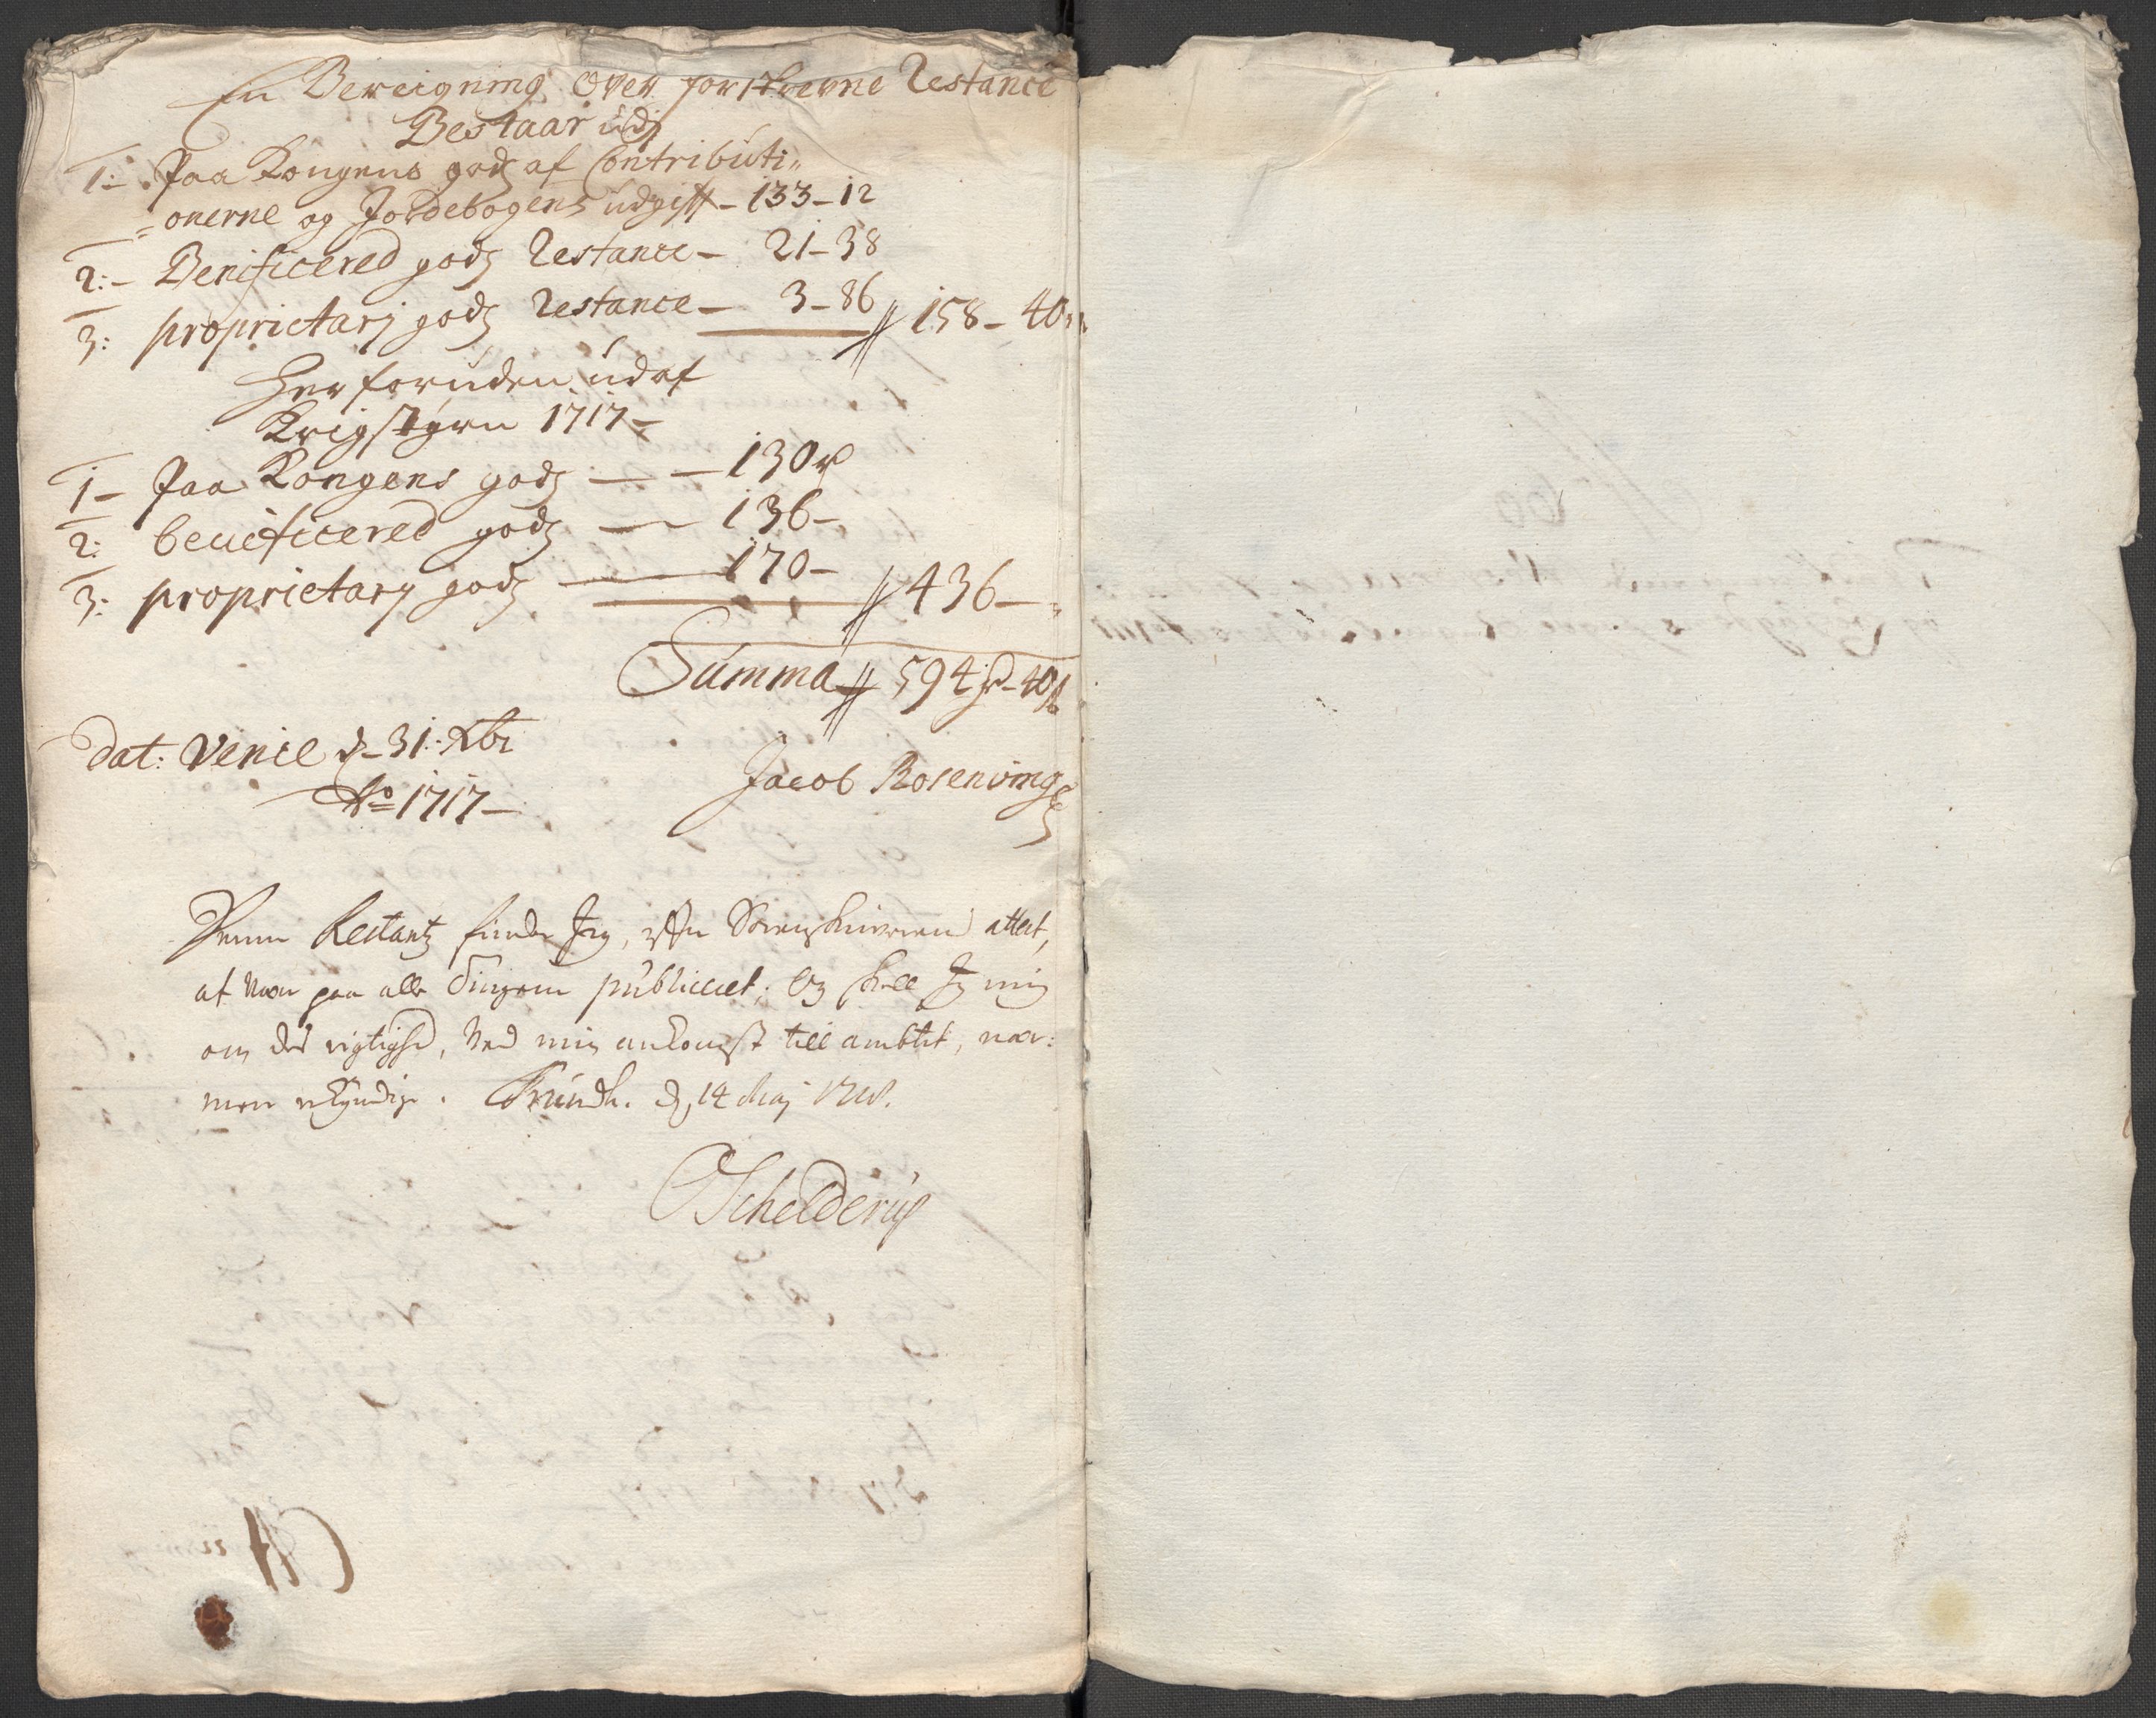 En Bereigning over forskrevne Restance
Bestaar udj
1:- Paa Kongens godz af Contributi„
=onerne og Jordebogens udgift - 133-12
2:- Benificered godz Restance - 21-38
3: proprietarj godz Restance - 3-86 // 158-40„
Her foruden udaf
Krigstyrn 1717-
1- Paa Kongens godz — - 130 r
2: beneficered godz — 136-
3: proprietary godz — 170- // 436-
Summa // 594 r - 40 s
dat: Venie d. 31: Xbr
Ao 1717-
Jacob Rosenvinge
Denne Restantz finder Jeg, effter Sorenskriverens attest,
at være paa alle Tingene publiceret, og skall Jeg mig
om des rigtighed, ved min ankomst till ambtet, nær:
mere erkyndige. Trundh. d. 14 Maj 1718.
Schelderup